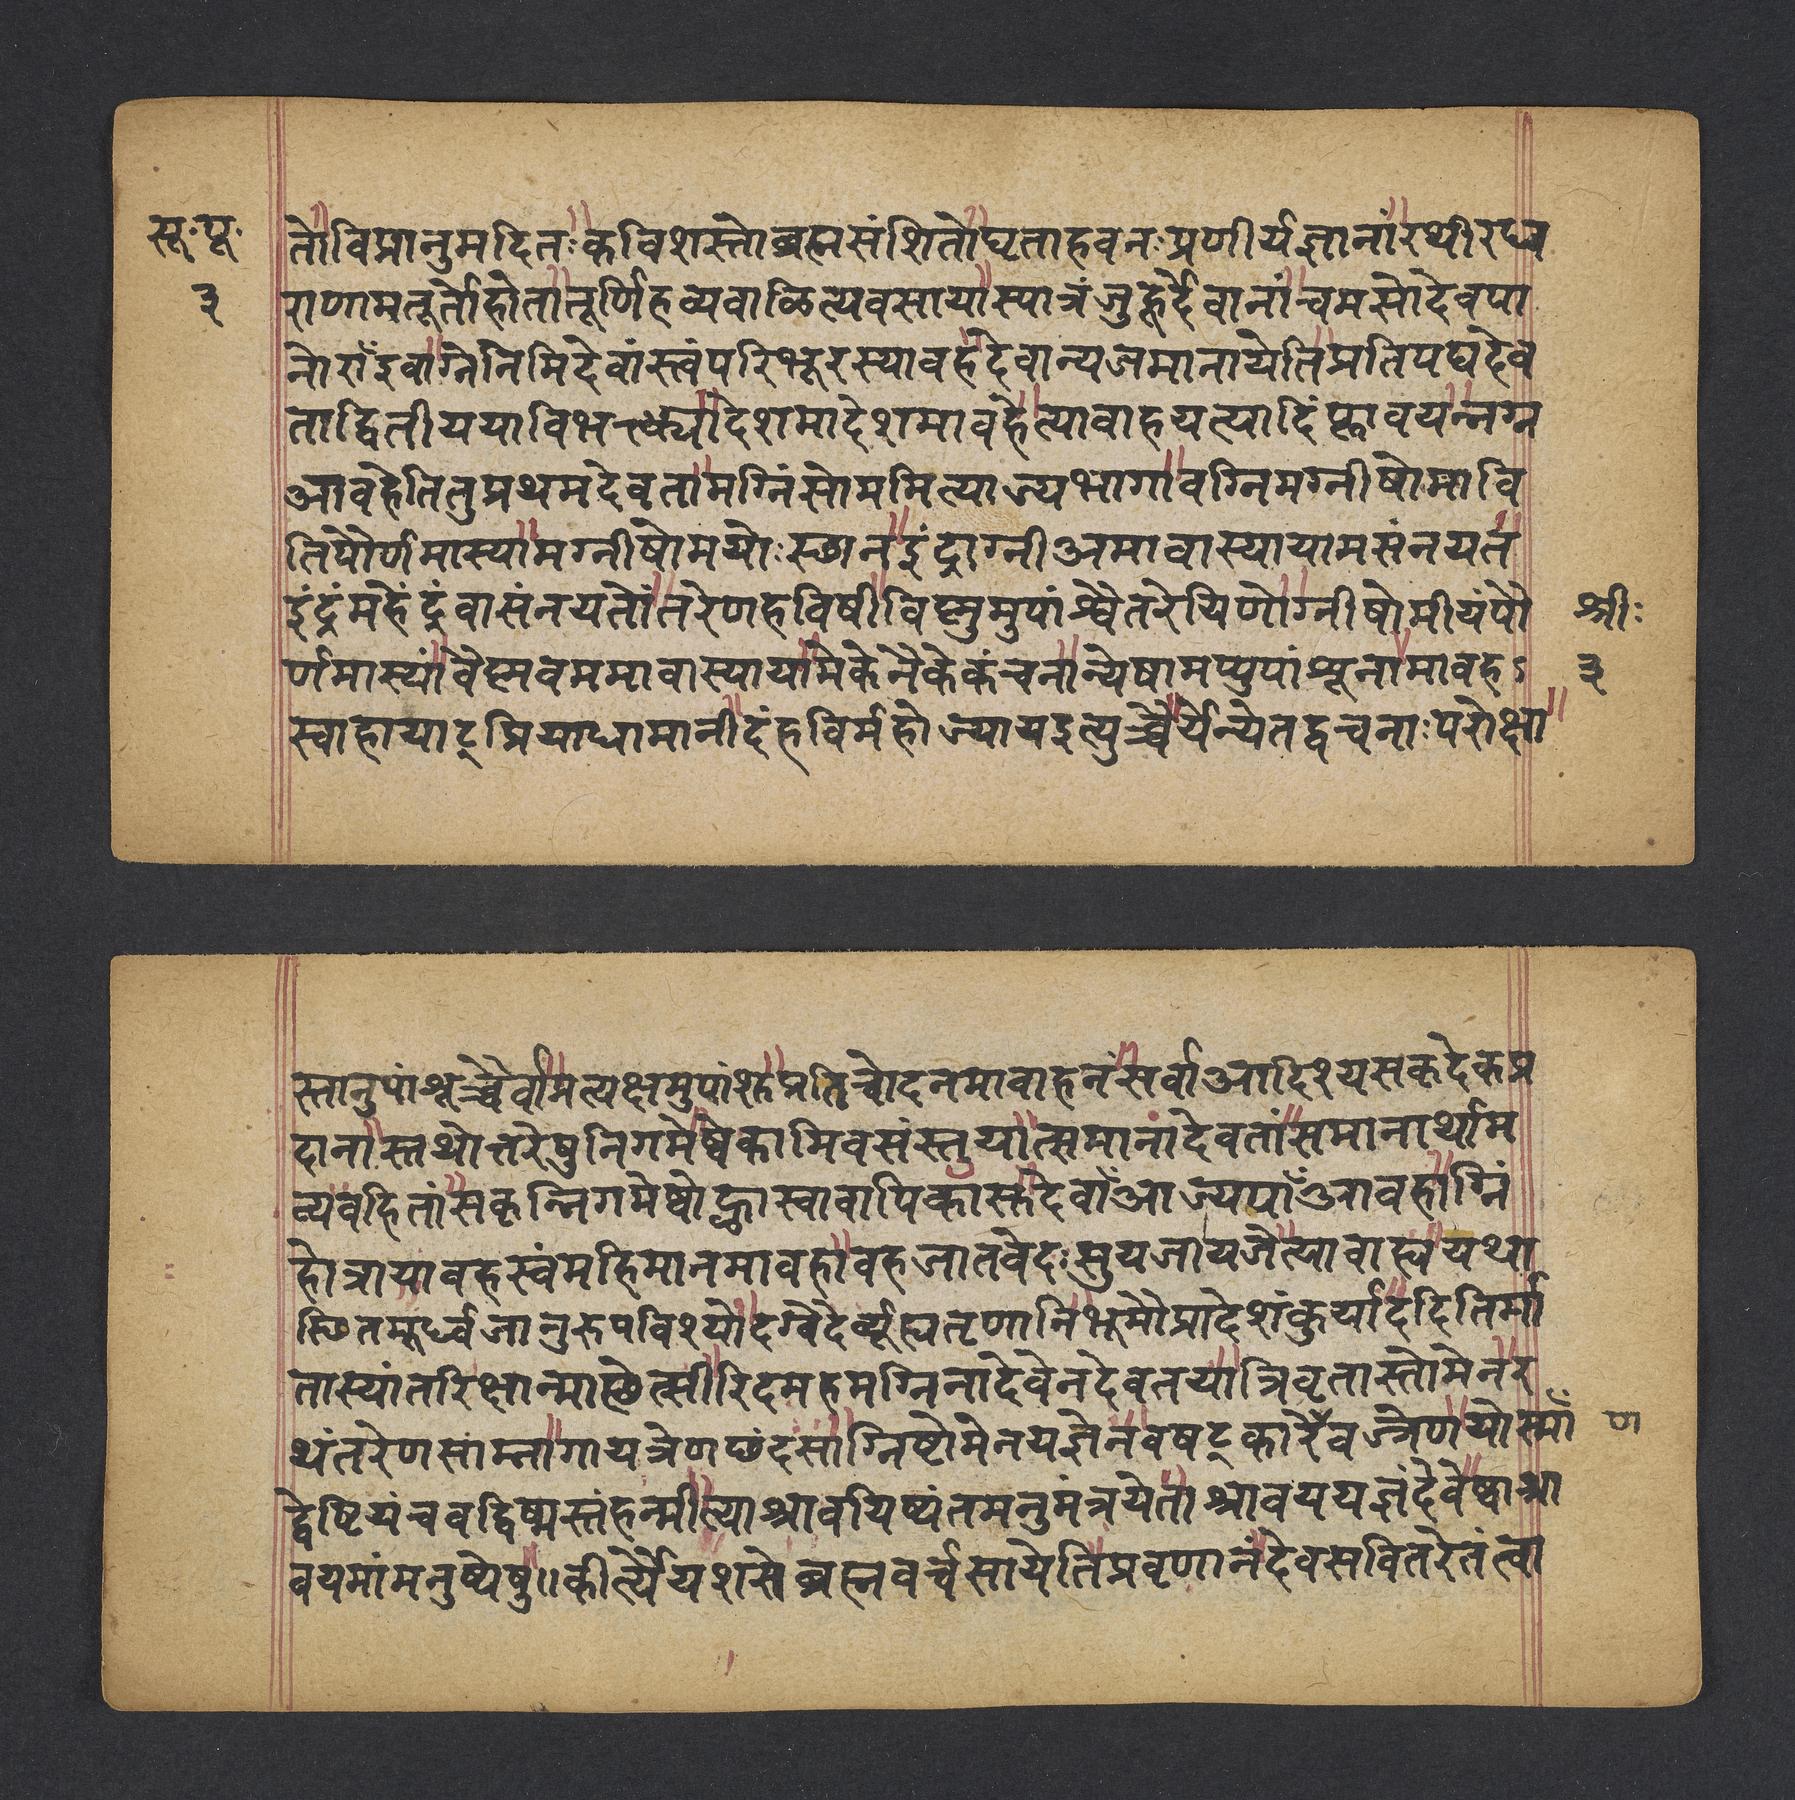 सू॰पू॰
३
तोविप्रानुमदितःकविशस्तोब्रह्मसंशितोघृताहवनःप्रणीर्यज्ञानांरथीरध्व
राणामतूर्तोहोतातूर्णिर्हव्यवाळित्यवसायास्पात्रंजुहूर्देवानांचमसोदेवपा
नोराँइवाग्नेनेमिर्देवांस्त्वंपरिभूरस्यावहदेवान्यजमानायेतिप्रतिपद्यदेव
ताद्वितीययाविभक्त्यादेशमादेशमावहेत्यावाहयत्यादिंप्लावयन्नग्न
आवहेतितुप्रथमदेवतामग्निंसोममित्याज्यभागावग्निमग्नीषोमावि
तिपौर्णमास्यामग्नीषोमयोःस्थानइंद्राग्नीअमावास्यायामसंनयत
इंद्रंमहेंद्रंवासंनयतोंतरेणहविषीविष्णुमुपांश्वैतरेयिणोग्नीषोमीयंपौ
र्णमास्यांवैष्णवममावास्यायामेकेनैकेकंचनान्येषामप्युपांशूनामावहऽ
स्वाहायाट्प्रियाधामानीदंहविर्महोज्यायइत्युच्चैर्येन्येतद्वचनाःपरोक्षा
श्रीः
३
स्तानुपांशूच्चैर्वामत्यक्षमुपांशुप्रतिचोदनमावाहनंसर्वाआदिश्यसकृदेकप्र
दानास्तथोत्तरेषुनिगमेष्वेकामिवसंस्तुयात्समानांदेवतांसमानार्थाम
व्यवहितांसकृन्निगमेषोढ्वास्वावापिकास्तुदेवाँआज्यपाँआवहाग्निं
होत्रायावहस्वंमहिमानमावहावहजातवेदःसुयजायजेत्यावाह्ययथा
स्थितमूर्ध्वजानुरुपविश्योदग्वेदेर्व्यूह्यतृणानिभूमौप्रादेशंकुर्याददितिर्मा
तास्यांतरिक्षान्माछेत्सीरिदमहमग्निनादेवेनदेवतयात्रिवृतास्तोमेनर
थंतरेणसाम्नागायत्रेणछंदसाग्निष्टोमेनयज्ञेनवषट्कारेँवज्रेणयोस्माँ
ण
द्वेष्टियंचवद्विष्मस्तंहन्मीत्याश्रावयिष्यंतमनुमंत्रयेताश्रावययज्ञंदेवेष्वाश्रा
वयमांमनुष्येषु॥कीर्त्यैयशसेब्रह्मवर्चसायेतिप्रवृणानंदेवसवितरेतंत्वा